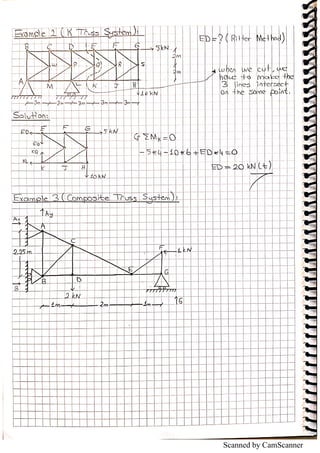 Example 1 (K Truss System):
ED=? (Ritter Method)
B C D E F G 5 kN
2m
2m
A M L K J H
10 kN
3m 3m 3m 3m 3m
when we cut, we
have to make the
3 lines intersect
on the same point.
Solution:
ED E F G 5 kN
K J H
10 kN
G ΣMK=0
-5*4-10*6+ED*4=0
ED=20 kN (t)
Example 3 (Composite Truss System):
Ax Ay
A
C
2.25m
F 1 kN
B D E G
2 kN
1m 2m 1m G
Scanned by CamScanner